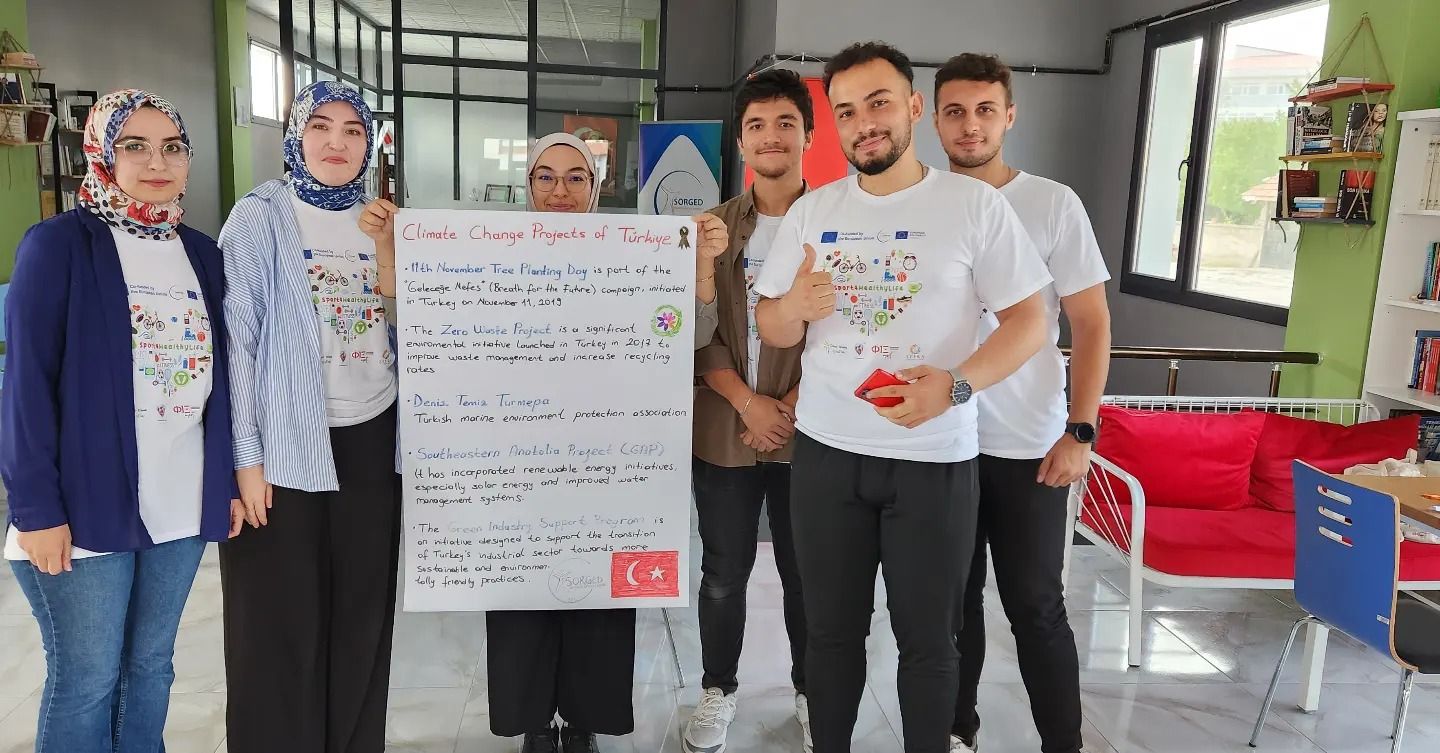 Climate Change Projects of Türkiye
• 11th November Tree Planting Day is part of the
"Geleceğe Nefes" (Breath for the Future) campaign, initiated
in Turkey on November 11, 2019
• The Zero Waste Project is a significant
enviromental initiative launched in Turkey in 2017 to
improve waste management and increase recycling
rates
• Denis Temiz Turmepa
Turkish marine environment protection association
• Southeastern Anatolia Project (GAP)
It has incorporated renewable energy initiatives,
especially solar energy and improved water
management systems.
• The Green Industry Support Program is
an initiative designed to support the transition
of Turkey's industrial sector towards more
sustainable and environmen-
tally friendly practices.
SORGED
SORGED
Co-funded by
the European Union
Sport&HealthyLife
ΦΙΞ
Co-funded by
the European Union
Sport&HealthyLife
Co-funded by
the European Union
Sport&HealthyLife
ΦΙΞ